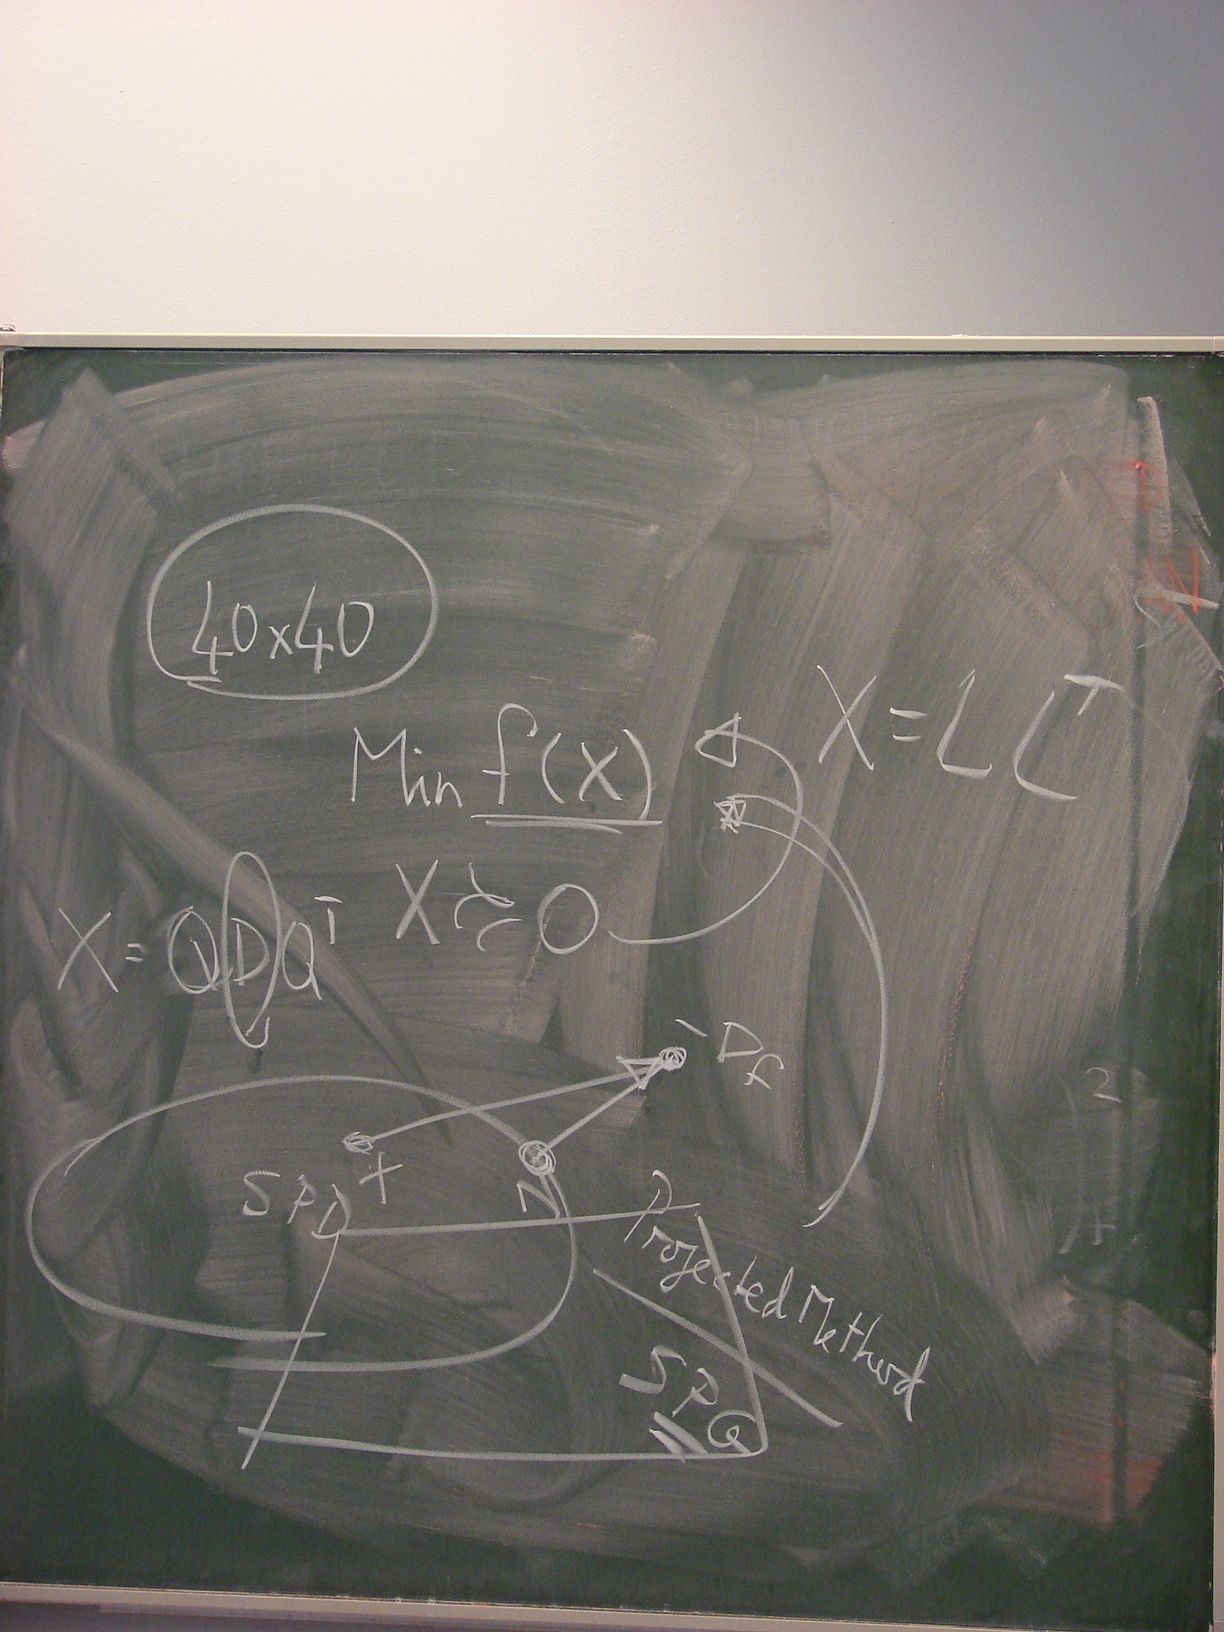 40x40
Min f(X)
X = L L^T
X ≽ 0
X = Q D Q^T
-Df
X
SPD
Projected Method
SPG
2